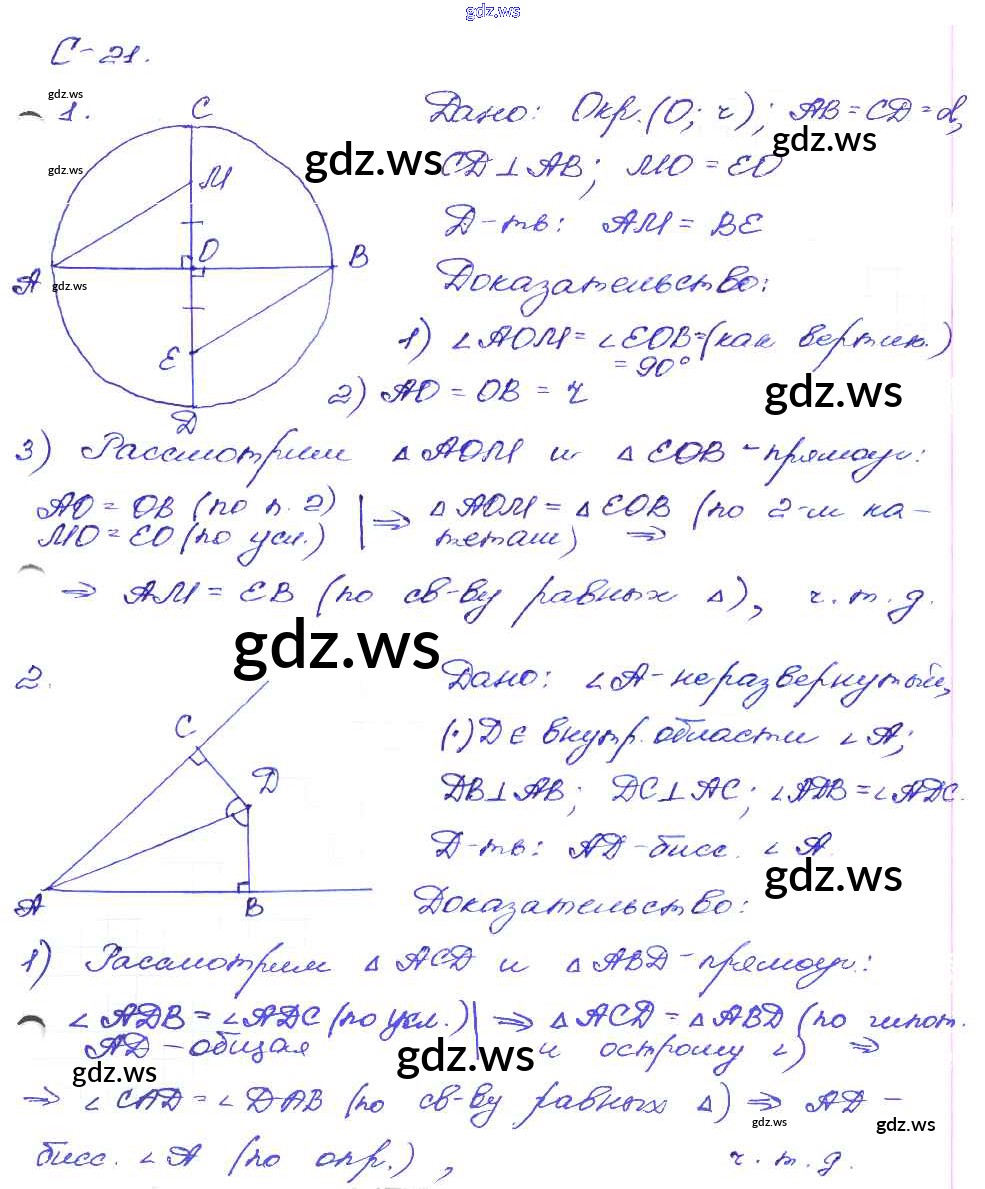 gdz.ws
С-21.
gdz.ws
1.
C
M
O
A
B
E
D
gdz.ws
gdz.ws
Дано: Окр.(O; r); AB = CD = d,
gdz.ws
gdz.ws
CD ⊥ AB; MO = EO
Д-ть: AM = BE
Доказательство:
1) ∠AOM = ∠EOB = (как вертик.)
= 90°
2) AO = OB = r
gdz.ws
3) Рассмотрим △ AOM и △ EOB - прямоуг.:
AO = OB (по п. 2) | ⇒ △ AOM = △ EOB (по 2-м ка-
MO = EO (по усл.) | тетам) ⇒
⇒ AM = EB (по св-ву равных △), ч.т.д.
gdz.ws
2.
C
D
A
B
Дано: ∠A - неразвернутый,
(·) D ∈ внутр. области ∠A;
DB ⊥ AB; DC ⊥ AC; ∠ADB = ∠ADC.
Д-ть: AD - бисс. ∠A.
gdz.ws
Доказательство:
1) Рассмотрим △ ACD и △ ABD - прямоуг.:
∠ADB = ∠ADC (по усл.) | ⇒ △ ACD = △ ABD (по гипот.
AD - общая | и острому ∠) ⇒
gdz.ws
gdz.ws
⇒ ∠CAD = ∠DAB (по св-ву равных △) ⇒ AD -
gdz.ws
gdz.ws
бисс. ∠A (по опр.), ч.т.д.